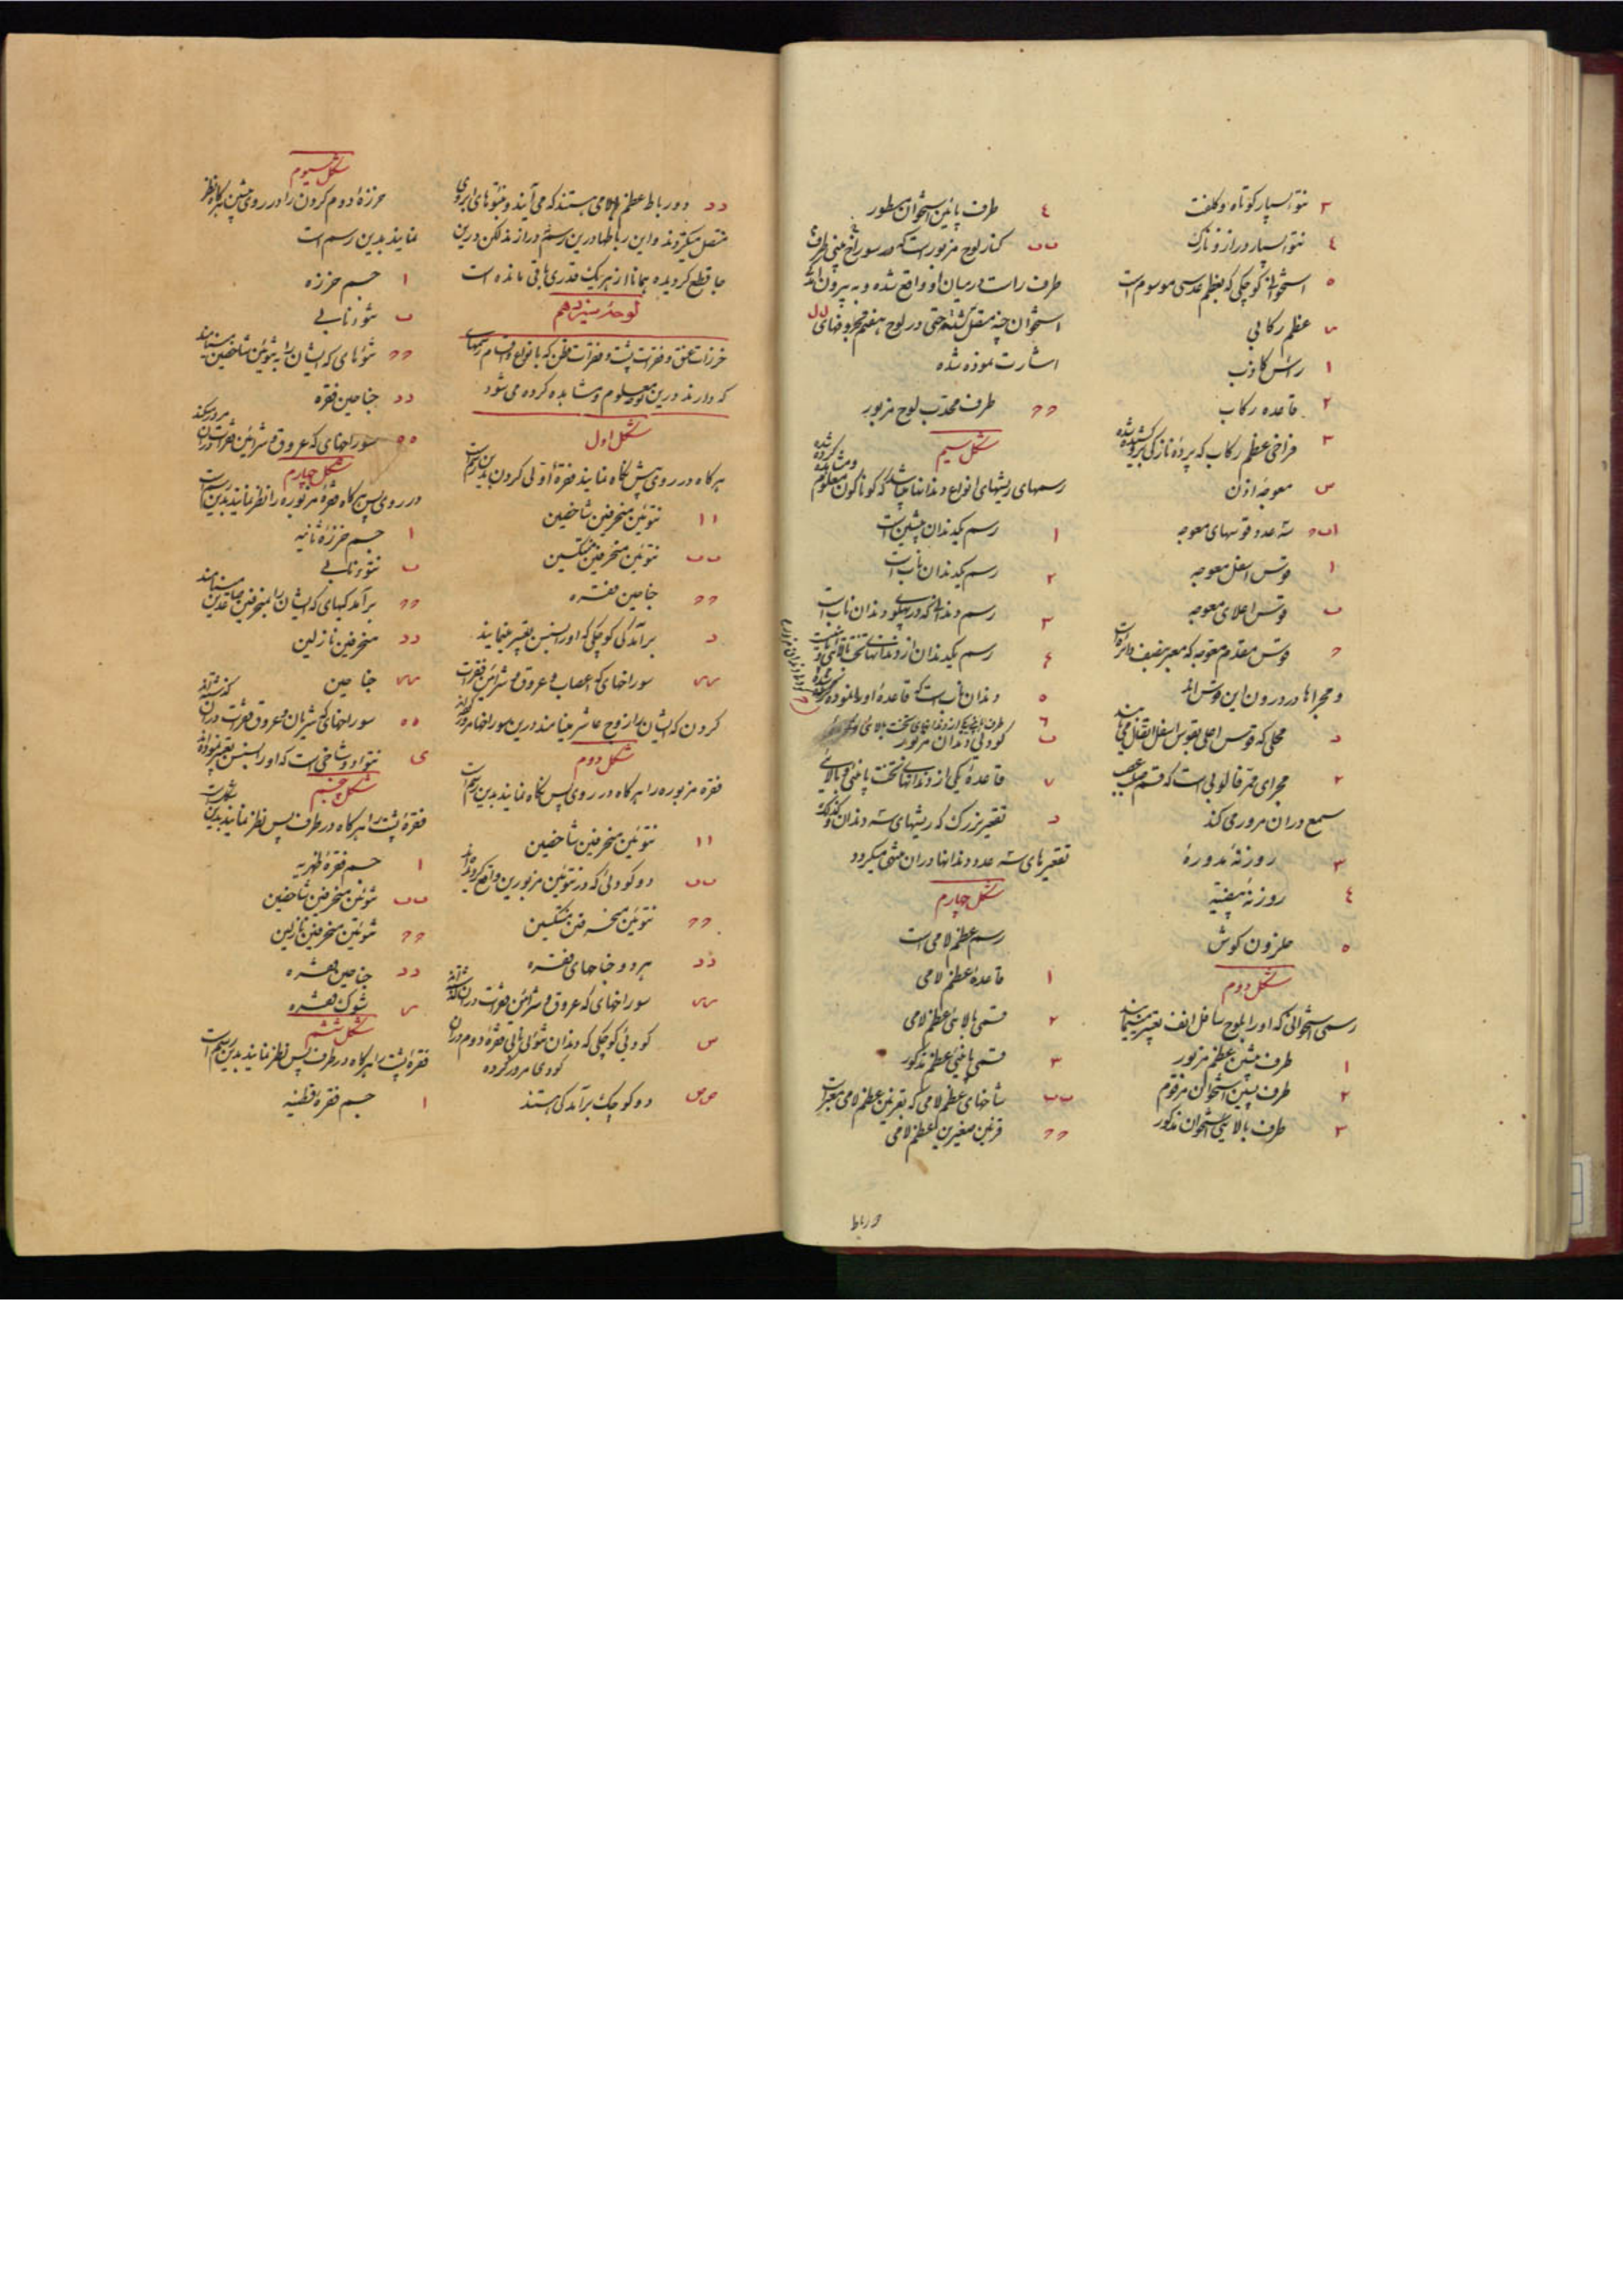 ۳ نتو بسیار کوتاه و کلفت
٤ نتو بسیار دراز و نازک
٥ استخوان کوچکی که بعظم عدسی موسوم است
س عظم رکابی
۱ راس کاذب
۲ قاعده رکاب
۳ فراخی عظم رکاب که پردهٔ نازکی برو کشیده شده
س معوجهٔ اذن
اب‍ه سه عدد قوسهای معوجه
۱ قوس اسفل معوجه
ب قوس اعلای معوجه
ه قوس مقدم معوجه که معبر بنصف دائره است
و مجراها در درون این قوس اند
د محلی که قوس اعلی بقوس اسفل اتصال می یابند
۲ مجرای ممر فالوپی است که قسم صلب عصب
سمع دران مرور می کند
۳ روزنهٔ مدوره
٤ روزنهٔ بیضیه
٥ حلزون کوش
شکل دوم
رسمی استخوانی که اورا بلوح سافل انف تعبیر مینمایند
۱ طرف پیشین عظم مزبور
۲ طرف پسین استخوان مرقوم
۳ طرف بالایین استخوان مذکور
٤ طرف پائین استخوان مسطور
ب‍ب کنار لوح مزبور است که در سوراخ بینی
طرف راست درمیان او واقع شده و به بیرون
استخوان چنه متصل کشته حتی در لوح هفتم بحروفهای ل‍ل
اشارت نموده شده
ه‍ه طرف محدب لوح مزبور
شکل سیم
رسمهای ریشهای انواع دندانها میباشد که کوناکون معلوم و مشاهده کرده شده
۱ رسم یکدندان پیشین است
۲ رسم یکدندان ناب است
۳ رسم دندانی که در پهلوی دندان ناب است
٤ رسم یکدندان از دندانهای تحت بالائی
٥ دندان ناب است که قاعدهٔ اورا نموده
ب کودی دندان مزبور
۷ قاعدهٔ یکی از دندانهای تحت پائینی و بالائی
د تقعیر بزرگ که ریشهای سه دندان
تقعیرهای سه عدد دندانها دران منتهی میکردد
شکل چهارم
رسم عظم لامی است
۱ قاعدهٔ عظم لامی
۲ قسمی بالایین عظم لامی
۳ قسمی پائین عظم مذکور
ب‍ب شاخهای عظم لامی که بقرنین عظم لامی معبر است
ه‍ه قرنین صغیرین عظم لامی
د‍د دو رباط عظم لامی هستند که می آیند و بنتوهای ابری
متصل میکردند و این رباطها درین رسم درازند لکن درین
جا قطع کردیده همانا از هر یک قدری باقی مانده است
لوحهٔ سیزدهم
خرزات عنق و فقرات پشت و فقرات قطن که بانواع و اقسام رسمهای
که دارند درین لوحه معلوم و مشاهده کرده می شود
شکل اول
هرکاه در روی پیش نکاه نمایند فقرهٔ اولی کردن بدین رسم است
۱۱ نتوئین منحرفین شاخصین
ب‍ب نتوئین منحرفین منتکسین
ه‍ه جناحین فقره
د برآمدکی کوچکی که اورا بسنس تعبیر مینمایند
س‍س سوراخهای که اعصاب و عروق و شرائین فقرات
کردن که ایشان را زوج عاشر مینامند درین سوراخها مرور کنند
شکل دوم
فقره مزبوره را هرکاه در روی پس نکاه نمایند بدین رسم است
۱۱ نتوئین منحرفین شاخصین
ب‍ب دو کودی که در نتوئین مزبورین واقع کردیده اند
ه‍ه نتوئین منحرفین منتکسین
د‍د هر دو جناحهای فقره
س‍س سوراخهای که عروق و شرائین فقرات دران
س کودی کوچکی که دندان نتو نابی فقرهٔ دوم دران
کودی مرور کرده
ص‍ص دو کوچک برآمدکی هستند
شکل سیوم
خرزهٔ دوم کردن را در روی پیشین هرکاه نظر
نمایند بدین رسم است
۱ جسم خرزه
ب نتوء نابی
ه‍ه نتوهای که ایشان را به نتوئین شاخصین
د‍د جناحین فقره
ه‍ه سوراخهای که عروق و شرائین فقرات دران مرور میکنند
شکل چهارم
در روی پس هرکاه فقرهٔ مزبوره را نظر نمایند بدین رسم است
۱ جسم خرزهٔ ثانیه
ب نتوء نابی
ه‍ه برآمدکیهای که ایشان را منحرفین صاعدین مینامند
د‍د منحرفین نازلین
س‍س جناحین
ه‍ه سوراخهای که شریان و عروق فقرات دران کذشته اند
ی نتو دو شاخی است که اورا بسنس تعبیر نموده اند
شکل پنجم
فقرهٔ پشت را هرکاه در طرف پس نظر نمایند بدین شکل است
۱ جسم فقرهٔ ظهریه
ب‍ب نتوئین منحرفین شاخصین
ه‍ه نتوئین منحرفین نازلین
د‍د جناحین فقره
س شوک فقره
شکل ششم
فقرهٔ پشت را هرکاه در طرف پس نظر نمایند بدین رسم است
۱ جسم فقرهٔ قطنیه